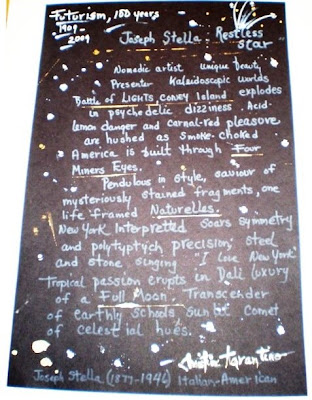 Futurism, 100 years
1909-
2009
Joseph Stella - Restless
star
Nomadic artist unique beauty,
Presenter Kaleidoscopic worlds
Battle of LIGHTS, CONEY Island explodes
in psychedelic dizziness. Acid-
lemon danger and carnal-red pleasure
are hushed as smoke-choked
America is built through Four
Miners Eyes.
Pendulous in style, saviour of
mysteriously stained fragments, one
life framed Naturelles.
New York Interpretted soars symmetry
and polytyptych precision, steel
and stone singing "I Love New York"
Tropical passion erupts in Dali luxury
of a Full Moon. Transcender
of earthly schools sunlit comet
of celestial hues.
Christine Tarantino
Joseph Stella (1877-1946) Italian-American